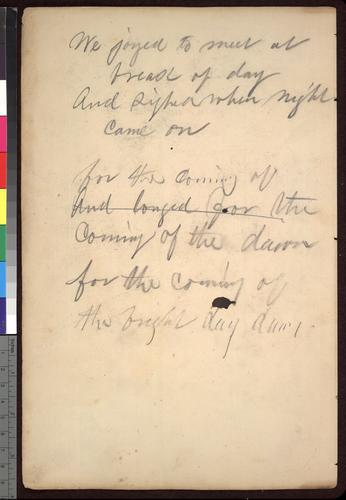 We joyed to meet at
break of day
And sighed when night
came on
for the coming of
And longed for the
Coming of the dawn
for the coming of
the bright day dawn.